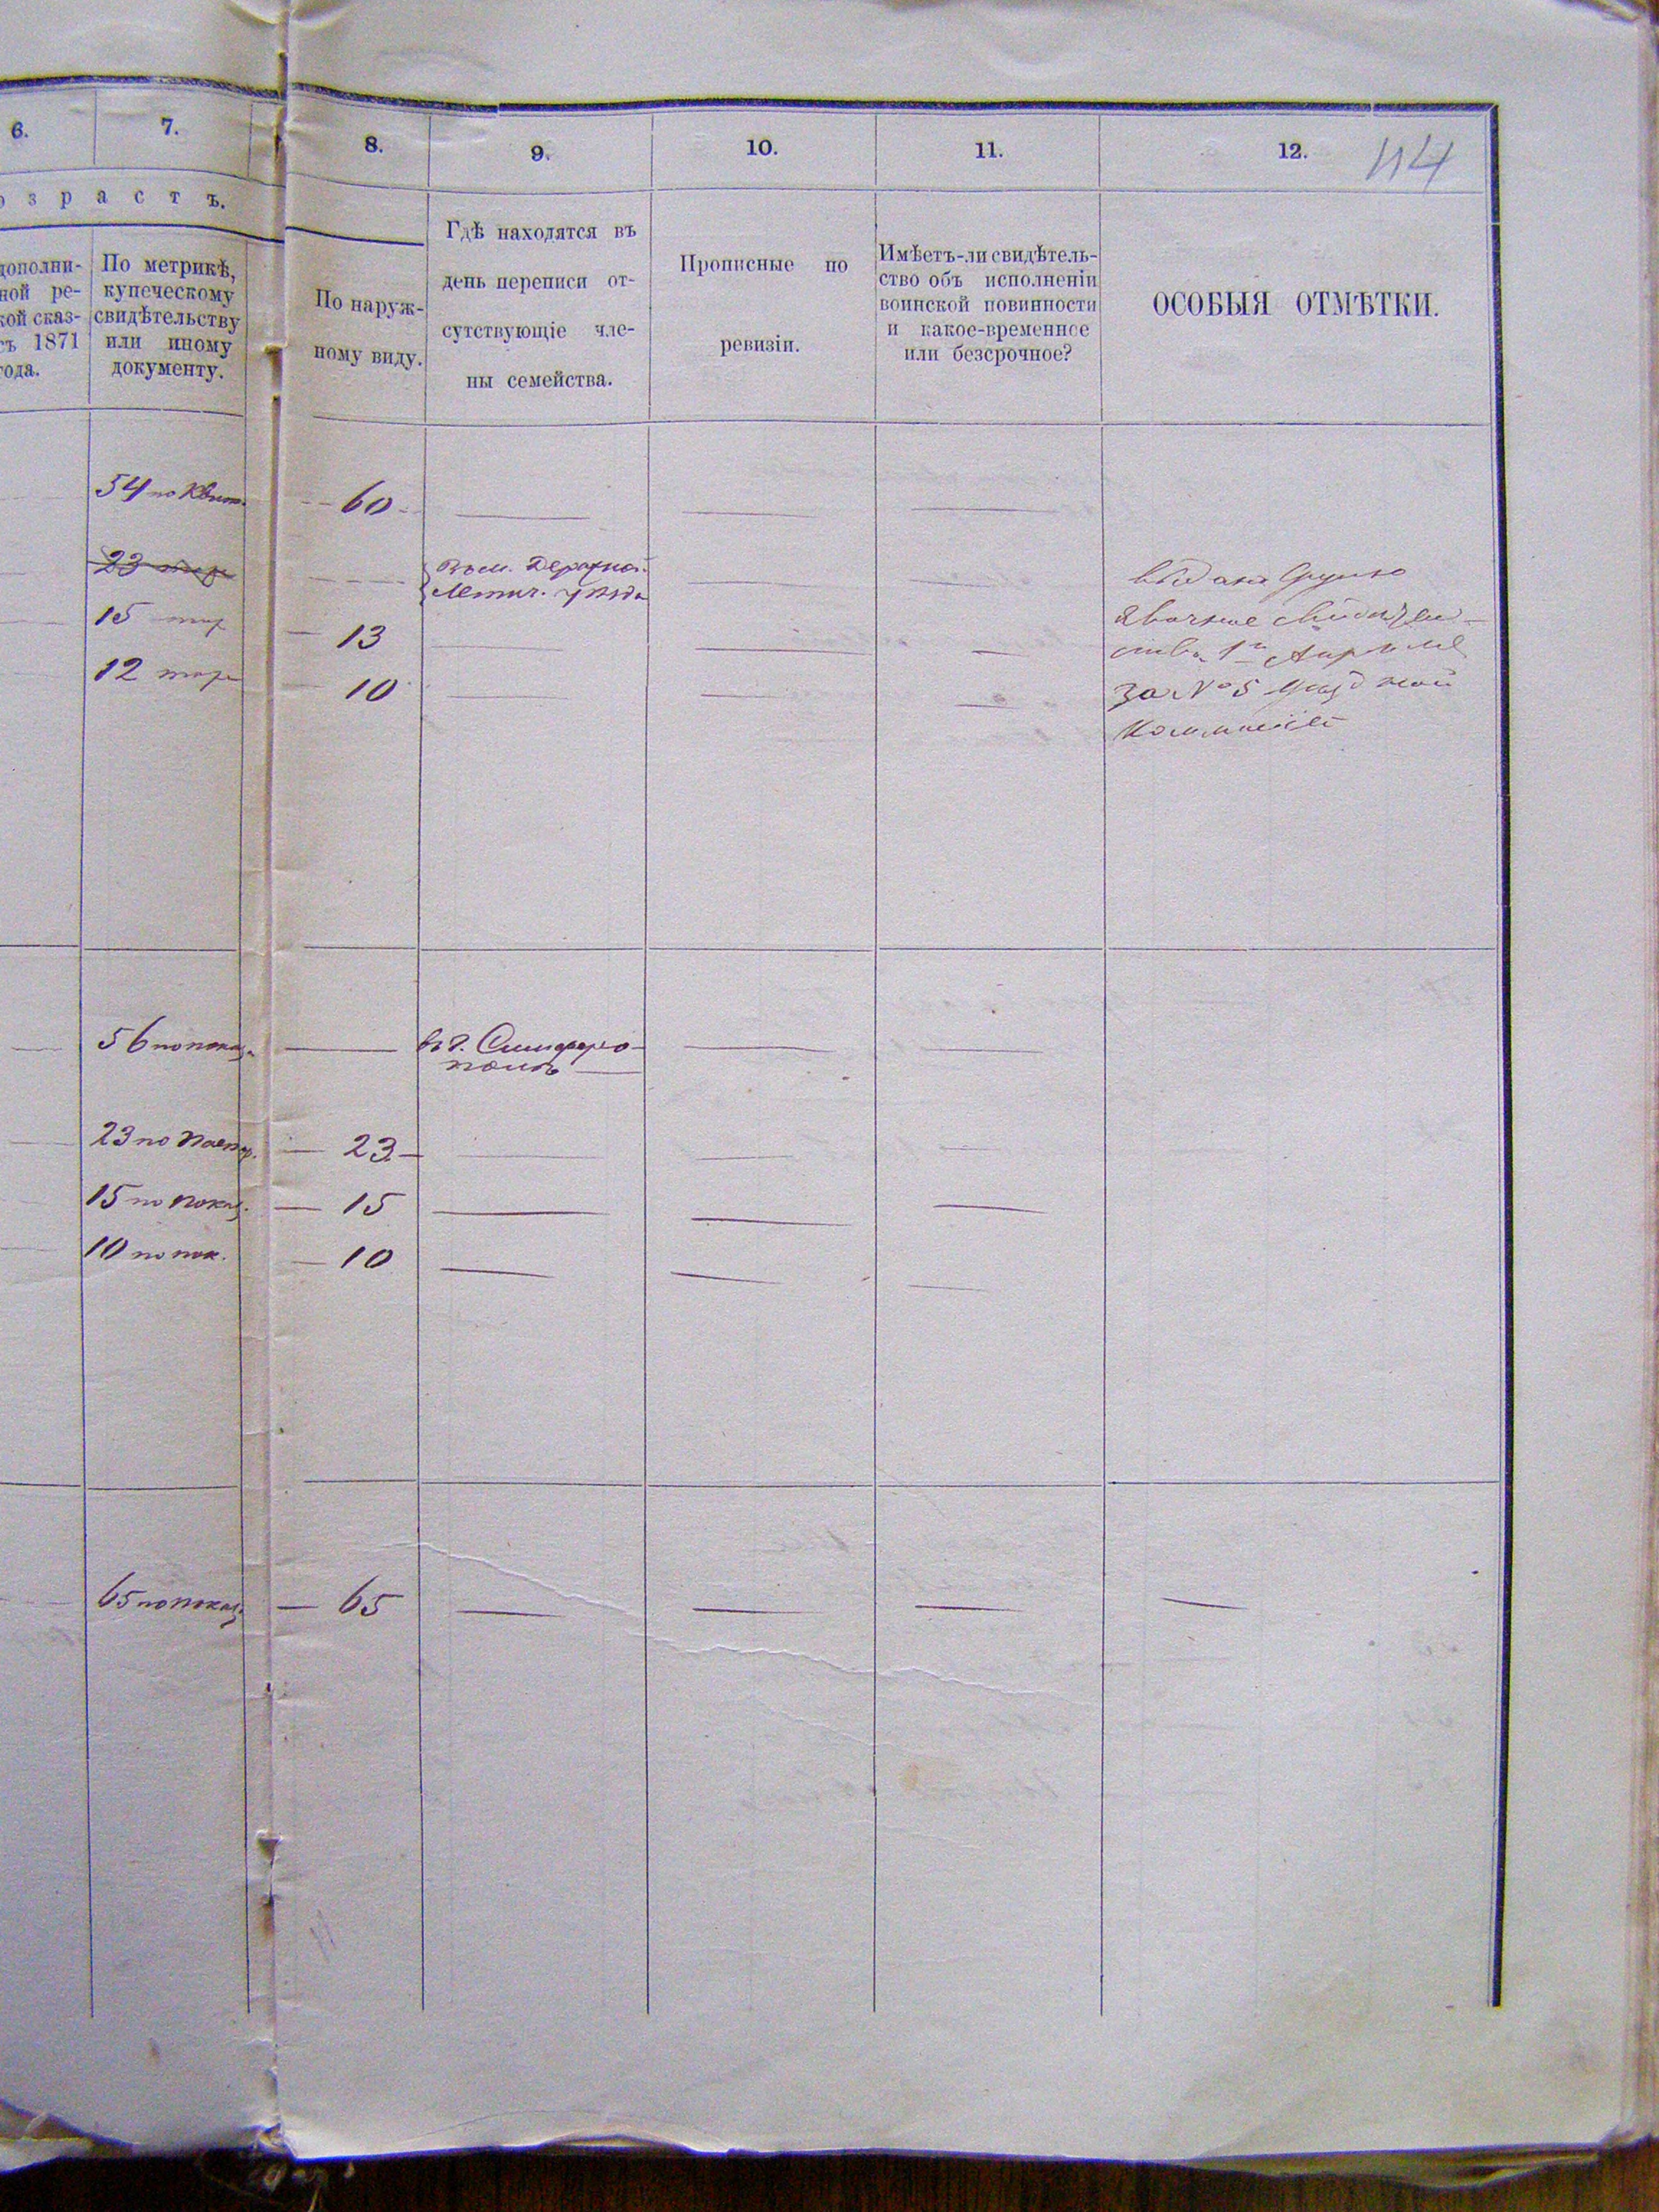 6.
7.
8.
9.
10.
11.
12.
114
озрастъ.
дополни-
ной ре-
кой сказ-
съ 1871
года.
По метрикѣ,
купеческому
свидѣтельству
или иному
документу.
По наруж-
ному виду.
Гдѣ находятся въ
день переписи от-
сутствующіе чле-
ны семейства.
Прописные по
ревизіи.
Имѣетъ-ли свидѣтель-
ство объ исполненіи
воинской повинности
и какое-временное
или безсрочное?
ОСОБЫЯ ОТМѢТКИ.
54 по Квит.
60
23
въ м. Деражнѣ.
Летич. уѣзда
15
13
12
10
за № 5
56 по показ.
въ г. Симферо-
полѣ
23 по Паспор.
23
15 по показ.
15
10 по пок.
10
65 по показ.
65